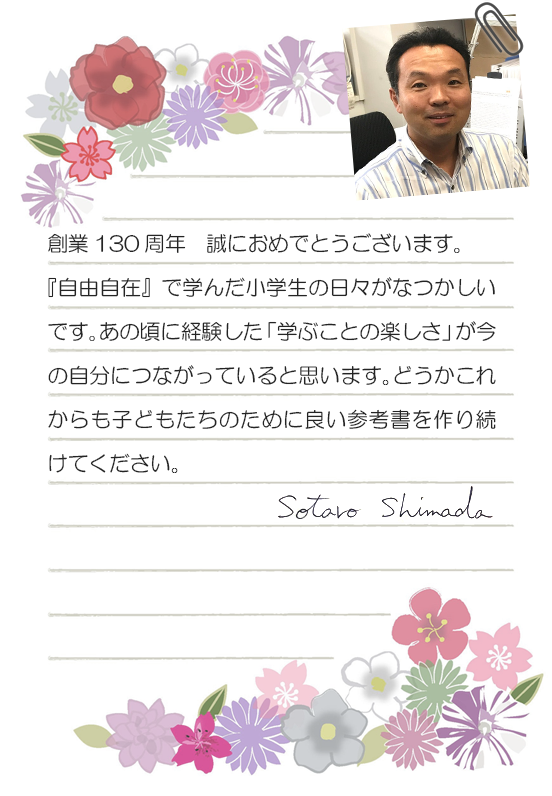 創業 130 周年　誠におめでとうございます。
『自由自在』で学んだ小学生の日々がなつかしい
です。あの頃に経験した「学ぶことの楽しさ」が今
の自分につながっていると思います。どうかこれ
からも子どもたちのために良い参考書を作り続
けてください。
Sotaro Shimada